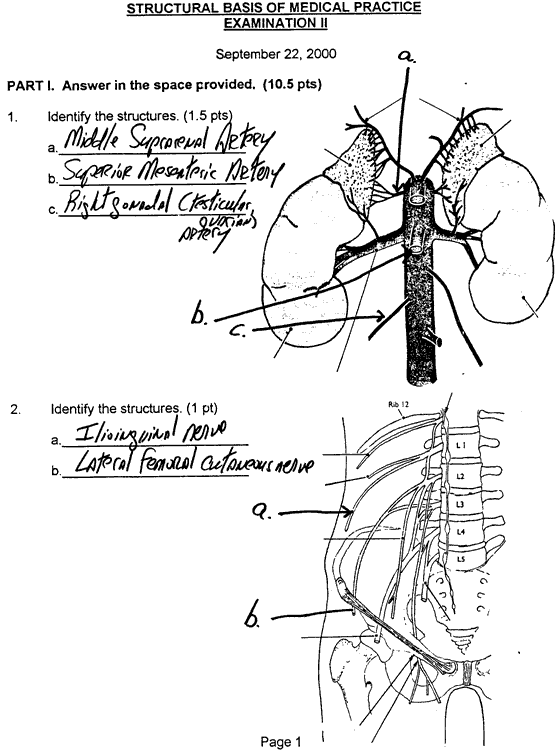 STRUCTURAL BASIS OF MEDICAL PRACTICE
EXAMINATION II
September 22, 2000
a.
PART I. Answer in the space provided. (10.5 pts)
1. Identify the structures. (1.5 pts)
a. Middle Suprarenal Artery
b. Superior Mesenteric Artery
c. Right gonadal (testicular,
ovarian)
Artery
b.
c.
2. Identify the structures. (1 pt)
a. Ilioinguinal nerve
b. Lateral Femoral cutaneous nerve
Rib 12
L1
L2
L3
L4
L5
a.
b.
Page 1